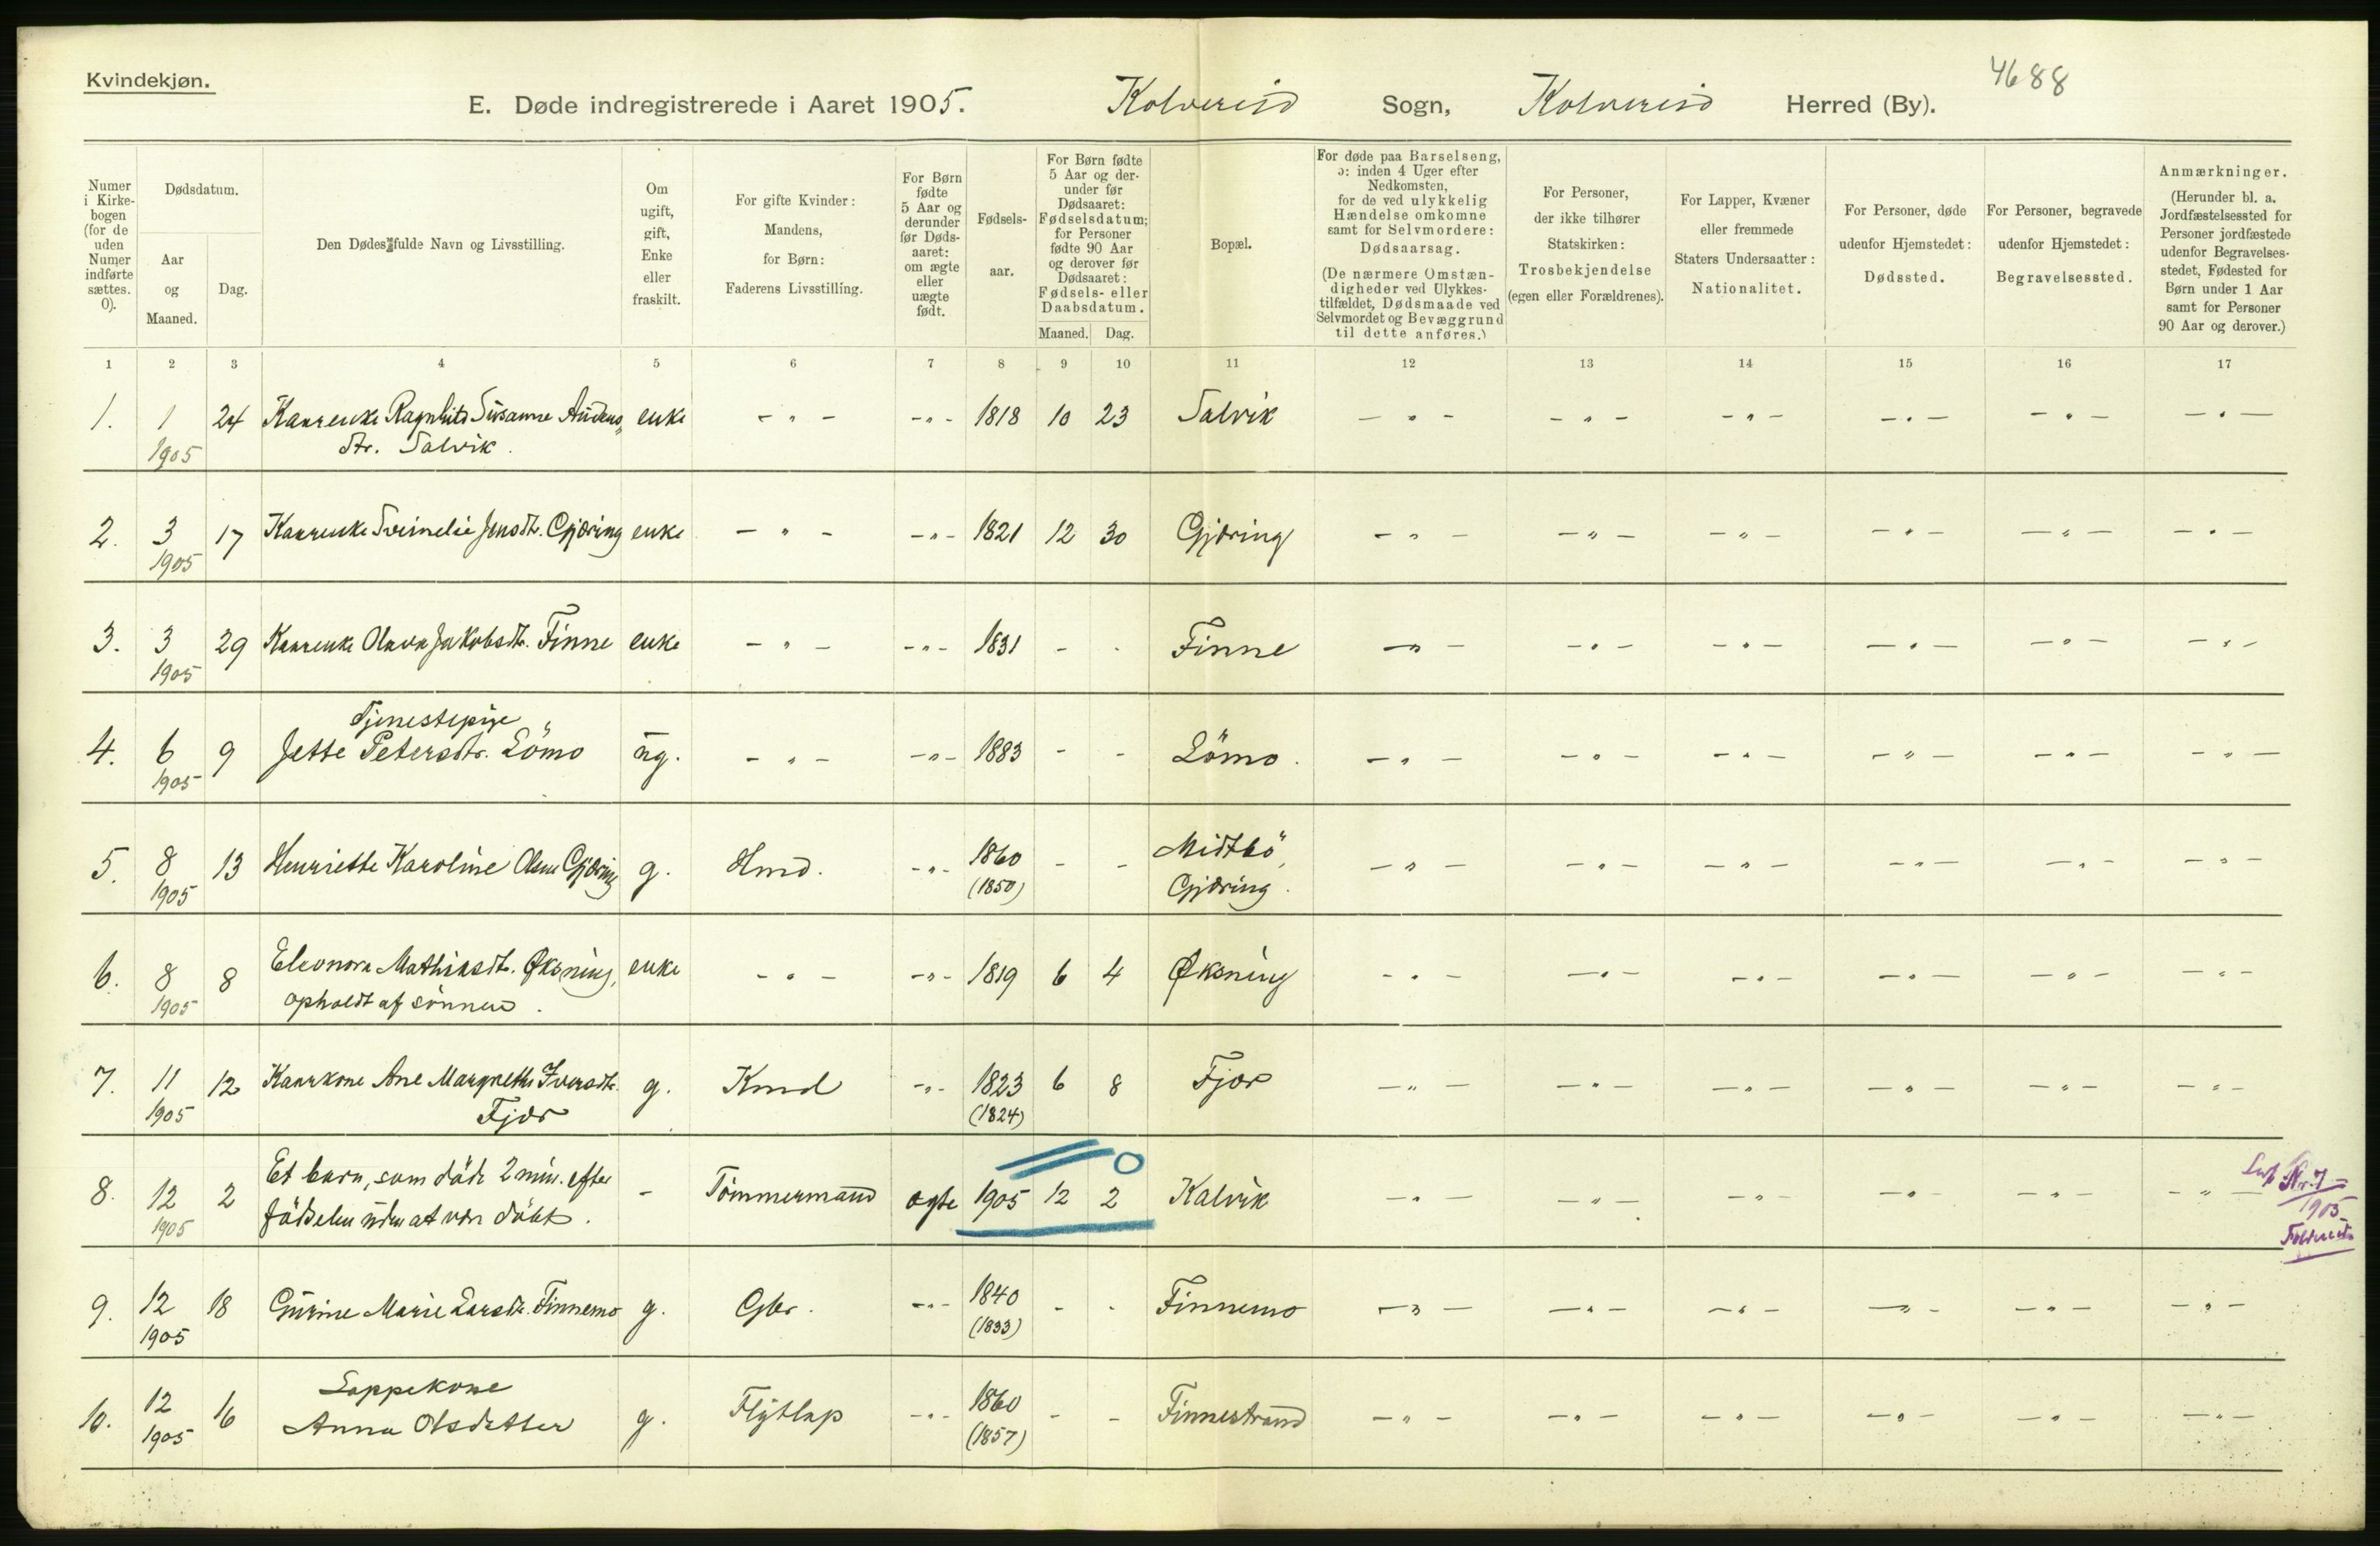 Kvindekjøn.
4688
E. Døde indregistrerede i Aaret 1905. Kolvereid Sogn, Kolvereid Herred (By).
Numer i Kirke-bogen (for de uden Numer indførte sættes. 0).
Dødsdatum.
Aar og Maaned.
Dag.
Den Dødes fulde Navn og Livsstilling.
Om ugift, gift, Enke eller fraskilt.
For gifte Kvinder: Mandens, for Børn: Faderens Livsstilling.
For Børn fødte 5 Aar og derunder før Døds-aaret: om ægte eller uægte født.
Fødsels-aar.
For Børn fødte 5 Aar og der-under før Dødsaaret: Fødselsdatum; for Personer fødte 90 Aar og derover før Dødsaaret: Fødsels- eller Daabsdatum.
Maaned. Dag.
Bopæl.
For døde paa Barselseng, ɔ: inden 4 Uger efter Nedkomsten, for de ved ulykkelig Hændelse omkomne samt for Selvmordere: Dødsaarsag.
(De nærmere Omstæn-digheder ved Ulykkes-tilfældet, Dødsmaade ved Selvmordet og Bevæggrund til dette anføres.)
For Personer, der ikke tilhører Statskirken: Trosbekjendelse (egen eller Forældrenes).
For Lapper, Kvæner eller fremmede Staters Undersaatter: Nationalitet.
For Personer, døde udenfor Hjemstedet: Dødssted.
For Personer, begravede udenfor Hjemstedet: Begravelsessted.
Anmærkninger.
(Herunder bl. a. Jordfæstelsessted for Personer jordfæstede udenfor Begravelses-stedet, Fødested for Børn under 1 Aar samt for Personer 90 Aar og derover.)
1 2 3 4 5 6 7 8 9 10 11 12 13 14 15 16 17
1. 1 24 Kaarenke Ragnhild Susanne enke - " - - " - 1818 10 23 Salvik - " - - " - - " - - " - - " - - " -
1905 dtr. Salvik.
2. 3 17 Kaarenke Jensdtr. Gjæring enke - " - - " - 1821 12 30 Gjæring - " - - " - - " - - " - - " - - " -
1905
3. 3 29 Kaarenke Olava Jakobsdtr. Finne enke - " - - " - 1831 - - Finne - " - - " - - " - - " - - " - - " -
1905
Tjenestepige
4. 6 9 Jette Petersdtr. Lömo ug. - " - - " - 1883 - - Lömo. - " - - " - - " - - " - - " - - " -
1905
5. 8 13 Henriette Karoline Gjæring g. Hmd. - " - 1860 - - Midtbö, - " - - " - - " - - " - - " - - " -
1905 (1850) Gjæring.
6. 8 8 Eleonora Mathiasdtr. Øksning, enke - " - - " - 1819 6 4 Øksning - " - - " - - " - - " - - " - - " -
1905 opholdt af sönnen.
7. 11 12 Kaarkone Ane Margrethe Iversdtr. g. Kmd - " - 1823 6 8 Fjær - " - - " - - " - - " - - " - - " -
1905 Fjær (1824)
8. 12 2 Et barn, som döde 2 min. efter - Tömmermand ægte 1905 12 2 Kalvik - " - - " - - " - - " - - " - - " - Nr. 7
1905 födselen uden at være döbt. 1905
Foldereid
9. 12 18 Gurine Marie Larsdtr. Finnemo g. Gbr. - " - 1840 - - Finnemo - " - - " - - " - - " - - " - - " -
1905 (1833)
Lappekone
10. 12 16 Anna Olsdatter g. Flytlap - " - 1860 - - Finnestrand - " - - " - - " - - " - - " - - " -
1905 (1857)